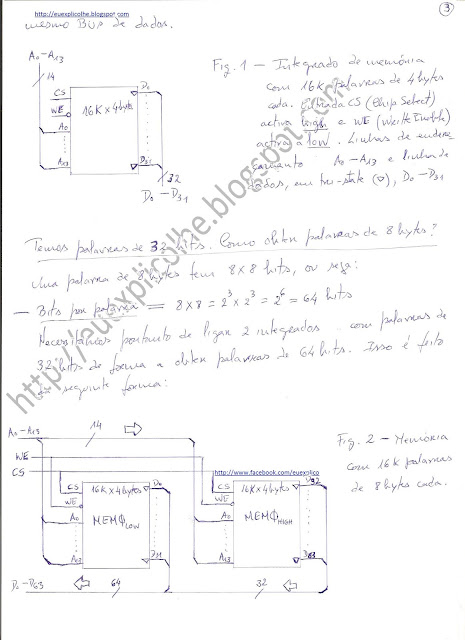 http://euexplicolhe.blogspot.com
3
mesmo BUS de dados.
A0-A13
14
CS
WE
A0
A13
16K x 4bytes
D0
D31
32
D0-D31
Fig. 1 - Integrado de memória
com 16K palavras de 4 bytes
cada. Entrada CS (Chip Select)
activa high e WE (Write Enable)
activa a low. Linhas de endere-
çamento A0-A13 e linhas de
dados, em tri-state (▽), D0-D31
Temos palavras de 32 bits. Como obter palavras de 8 bytes?
Uma palavra de 8 bytes tem 8x8 bits, ou seja:
- Bits por palavra = 8x8 = 2^3 x 2^3 = 2^6 = 64 bits
Necessitamos portanto de ligar 2 integrados com palavras de
32 bits de forma a obter palavras de 64 bits. Isso é feito
da seguinte forma:
http://euexplicolhe.blogspot.com
A0-A13
14
WE
CS
http://www.facebook.com/euexplico
CS
WE
A0
A13
16K x 4bytes
MEMØ LOW
D0
D31
CS
WE
A0
A13
16K x 4bytes
MEMØ HIGH
D32
D63
D0-D63
64
32
Fig. 2 - Memória
com 16K palavras
de 8 bytes cada.